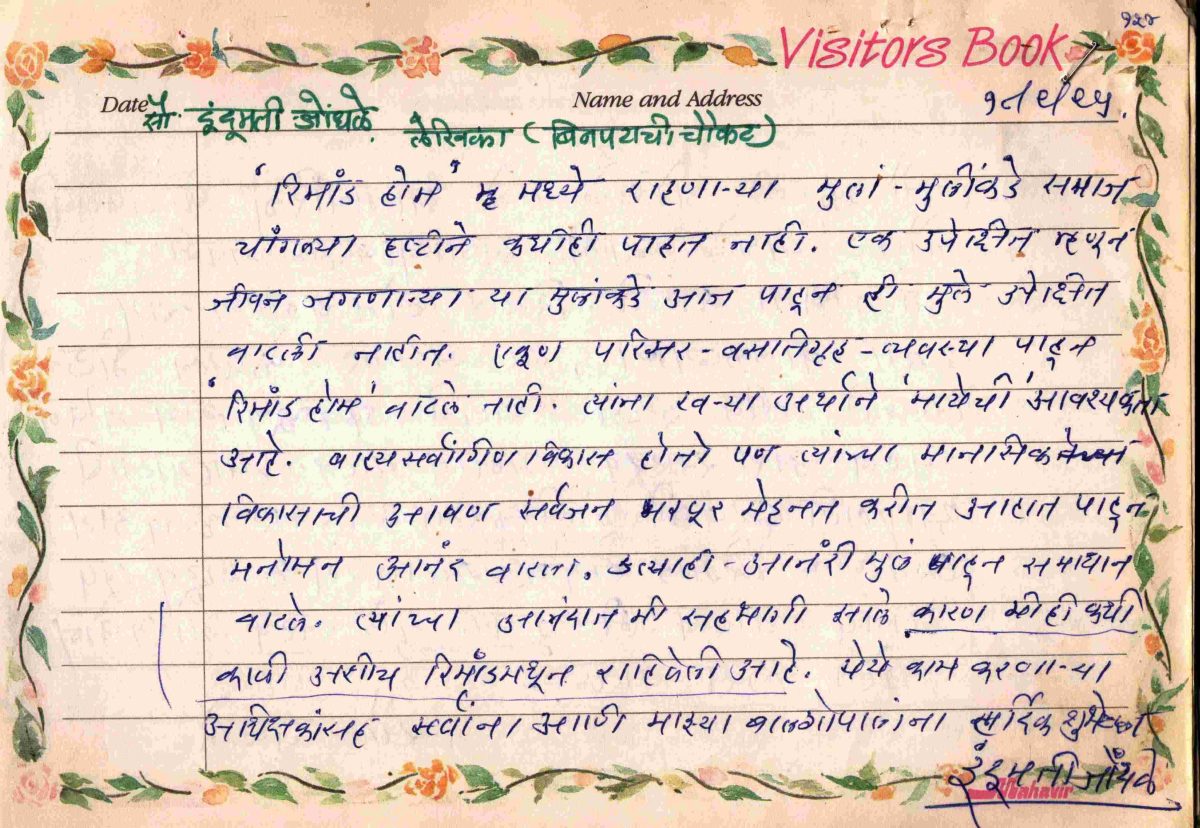 १२४
Visitors Book
Date
Name and Address
१८९९५.
सौ. इंदूमती जोंधळे.
लेखिका ( बिनपटाची चौकट )
'रिमांड होम' मध्ये राहणाऱ्या मुलां - मुलींकडे समाज
चांगल्या दृष्टीने कधीही पाहत नाही. एक उपेक्षित म्हणून
जीवन जगणाऱ्या या मुलांकडे आज पाहून ही मुले उपेक्षित
वाटली नाहीत. एकूण परिसर - वसतिगृह - व्यवस्था पाहून
'रिमांड होम' वाटले नाही. त्यांना खऱ्या अर्थाने 'मायेची' आवश्यकता
आहे. बाह्य सर्वांगिण विकास होतो पण त्यांच्या मानसिकतेच्या
विकासाची आपण सर्वजन भरपूर मेहनत करीत आहात पाहून
मनोमन आनंद वाटला. उत्साही - आनंदी मुलं पाहून समाधान
वाटले. त्यांच्या आनंदात मी सहभागी झाले कारण मीही कधी
काळी अशीच रिमांडमधून राहिलेली आहे. येथे काम करणाऱ्या
अधिक्षकांसह सर्वांना आणि माझ्या बालगोपालांना हार्दिक शुभेच्छा
इंदुमती जोंधळे
Mahavir